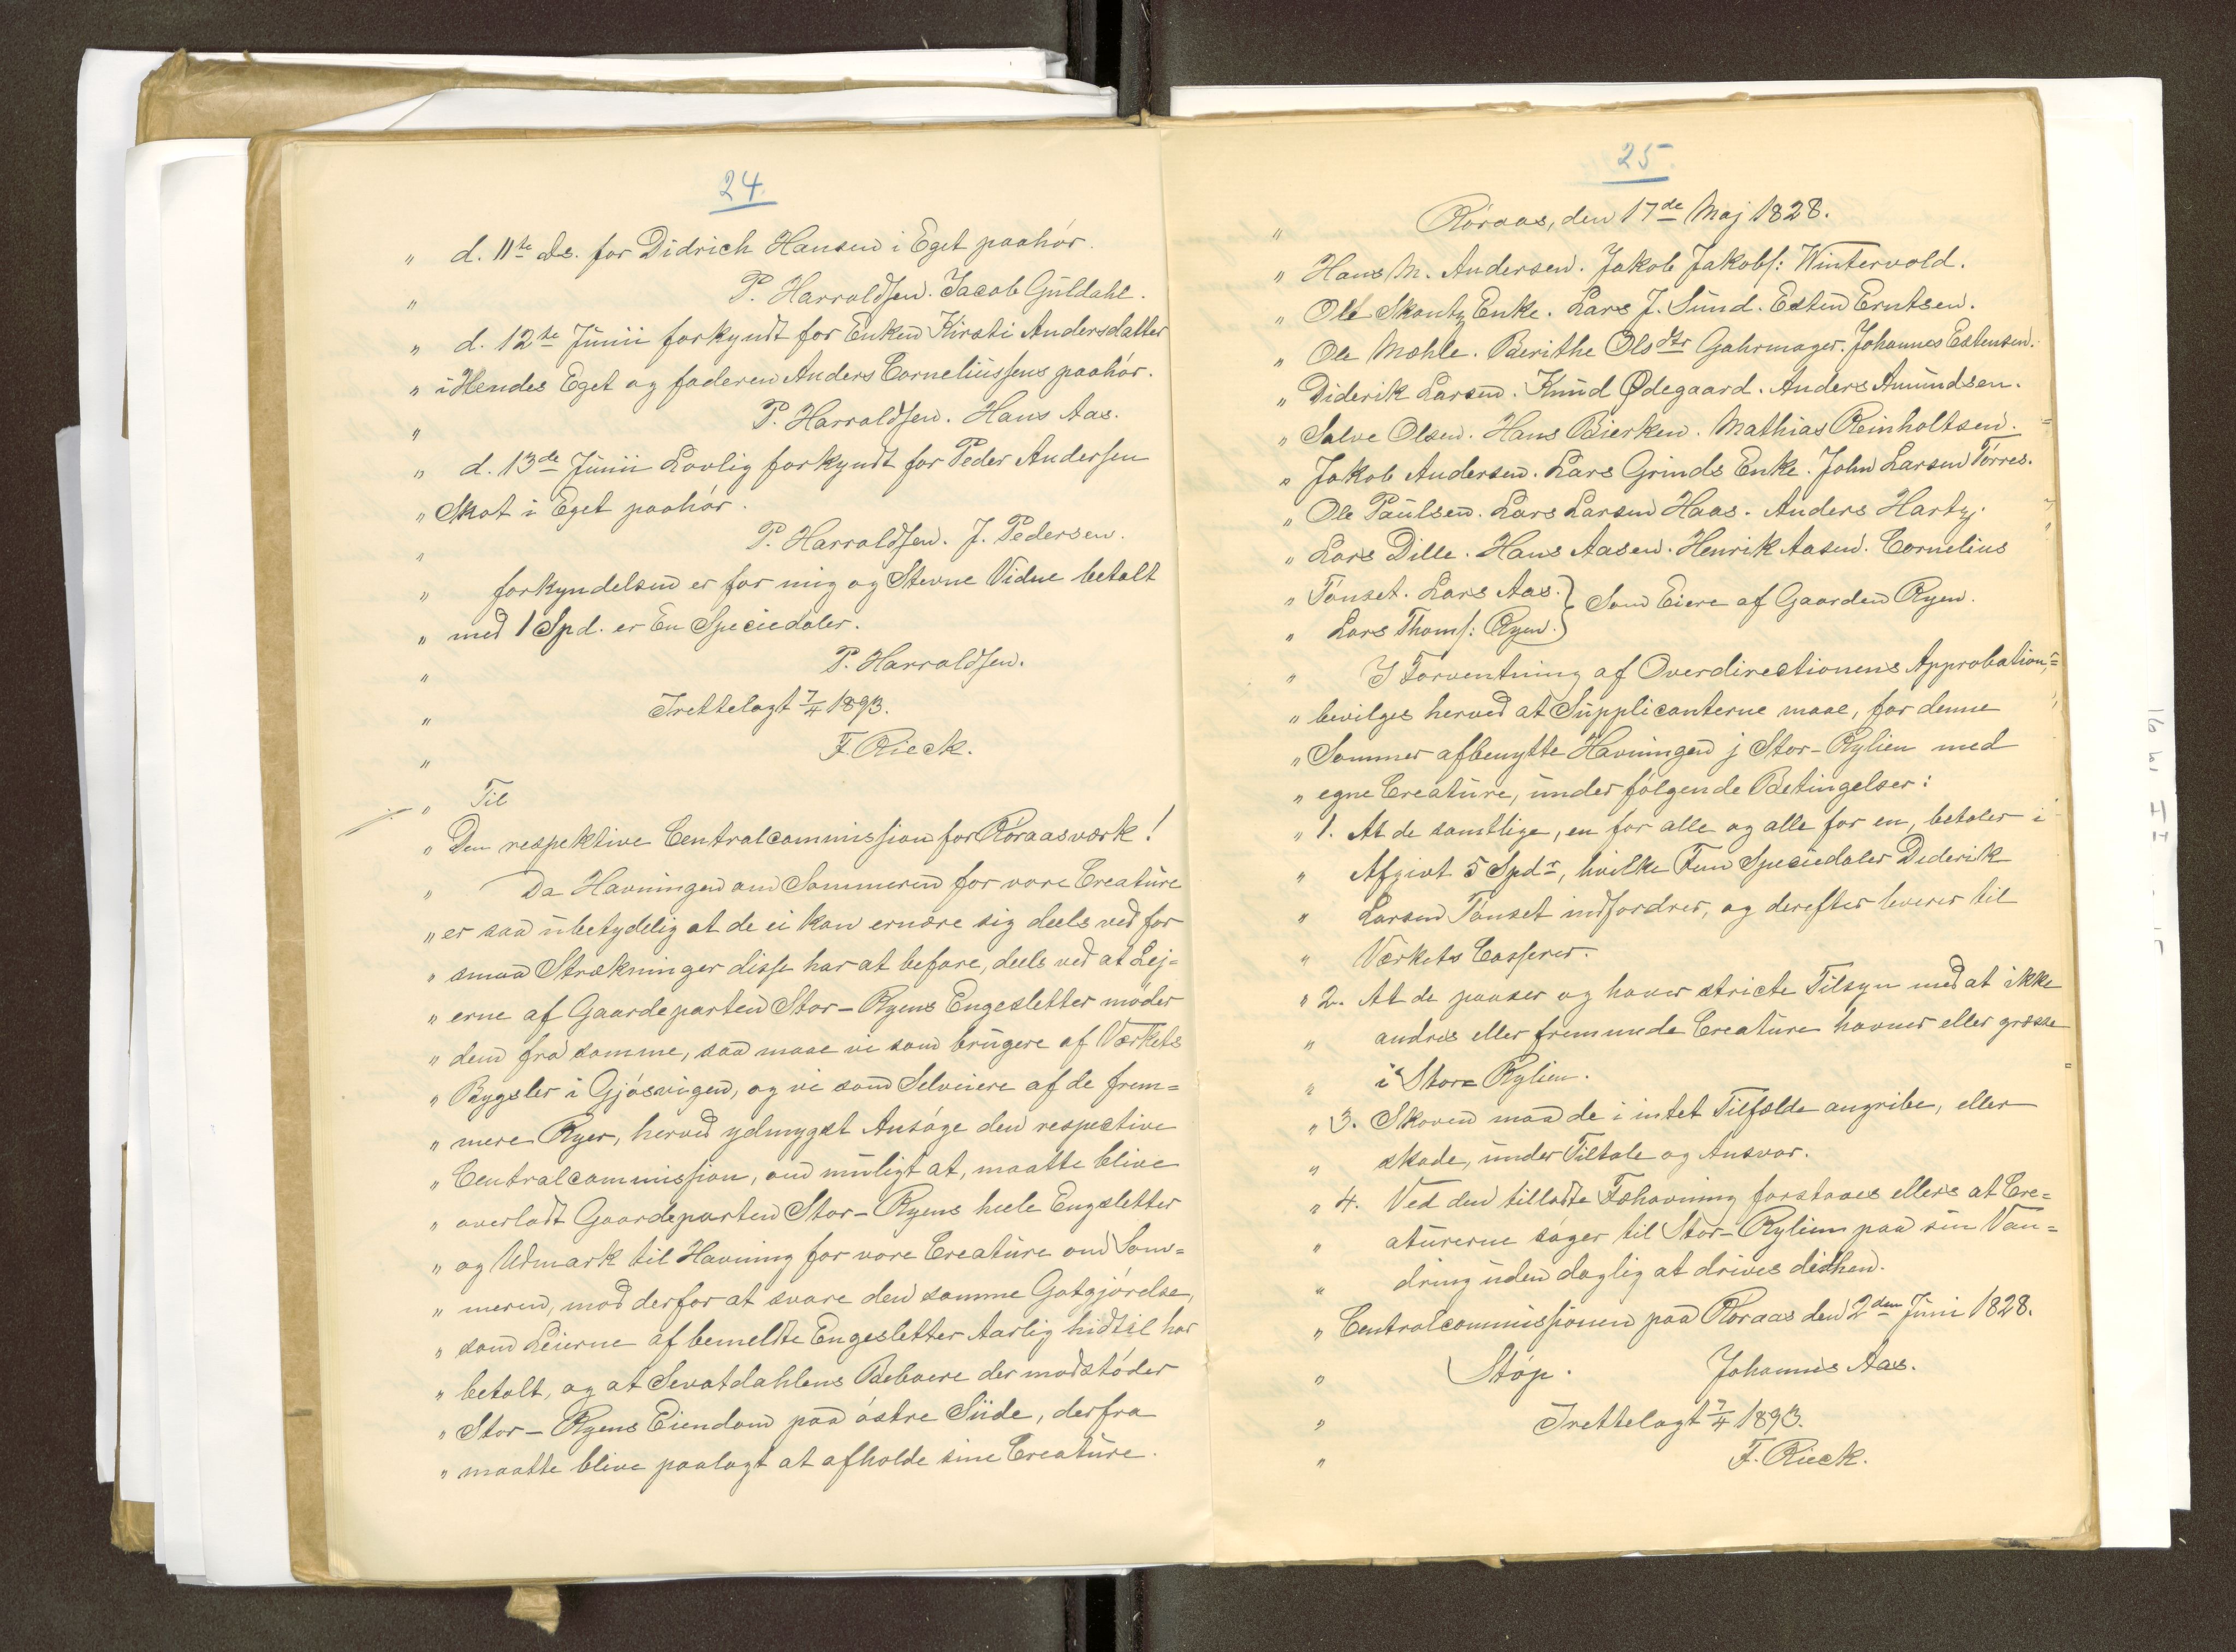 24.
" d. 11te ds. for Didrich Hansen i Eget paahór.
" P. Harroldsen. Jacob Guldahl.
" d. 12te Junii forkyndt for Enken Kirsti Andersdatter
" i Hendes Eget og faderen Anders Corneliussens paahór.
" P. Harroldsen. Hans Aas.
" d. 13de Junii Lovlig forkyndt for Peder Andersen
" Skot i Eget paahór.
" P. Harroldsen. J. Pedersen.
" forkyndelsen er for mig og Stevne Vidne betalt
" med 1 Spd. er En Speciedaler.
" P. Harroldsen.
" Irettelagt 7/4 1893.
" F. Rieck.
" Til
" Den respektive Centralcommission for Róraasværk!
" Da Havningen om Sommeren for vore Creature
" er saa ubetydelig at de ei kan ernære sig deels ved for
" smaa Strækninger disse har at befare, deels ved at Lej=
" erne af Gaardeparten Stor-Ryens Engesletter móder
" dem fra samme, saa maae vi som brugere af Værkets
" Bygsler i Gjósvigen, og vi som Selveiere af de frem=
" mere Ryer, herved ydmygst Ansóge den respective
" Centralcommission, om muligt at, maatte blive
" overladt Gaardeparten Stor-Ryens heele Engsletter
" og Udmark til Havning for vore Creature om Som=
" meren, mod derfor at svare den samme Gotgjórelse,
" som Leierne af bemeldte Engesletter Aarlig hidtil har
" betalt, og at Sevatdahlens Beboere der modstóder
" Stor-Ryens Eiendom paa óstre Siide, derfra
" maatte blive paalagt at afholde sine Creature.
25.
" Róraas, den 17de Maj 1828.
" Hans M. Andersen. Jakob Jakobs: Wintervold.
" Ole Skantz Enke. Lars J. Sund. Esten Erntsen.
" Ole Mæhle. Berithe Olsdtr Gahrmager. Johannes Estensen.
" Diderik Larsen. Knud Ødegaard. Anders Amundsen.
" Salve Olsen. Hans Bierken. Mathias Reinholtsen.
" Jakob Andersen. Lars Grinds Enke. John Larsen Tórres.
" Ole Paulsen. Lars Larsen Haas. Anders Hartz.
" Lars Dille. Hans Aasen. Henrik Aasen. Cornelius
" Tónset. Lars Aas. } Som Eiere af Gaarden Ryen.
" Lars Thoms: Ryen. }
" I Forventning af Overdirectionens Approbation,
" bevilges herved at Supplicanterne maae, for denne
" Sommer afbenytte Havningen j Stor-Rylien med
" egne Creature, under fólgende Betingelser:
" 1. At de samtlige, en for alle og alle for en, betaler i
" Afgivt 5 Spdr, hvilke Fem Speciedaler Dederik
" Larsen Tónset indfordrer, og derefter leverer til
" Værkets Casserer.
" 2. At de paaser og haver stricte Tilsyn med at ikke
" andres eller fremmede Creature havner eller græsse
" i Stor=Rylien.
" 3. Skoven maa de i intet Tilfælde angribe, eller
" skade, under Tiltale og Ansvar.
" 4. Ved den tilladte Fæhavning forstaaes ellers at Cre=
" aturerne sóger til Stor-Rylien paa sin Van=
" dring uden daglig at drives didhen.
" Centralcommissionen paa Róraas den 2den Juni 1828.
" Stóp. Johannes Aas.
" Irettelagt 7/4 1893.
" F. Rieck.